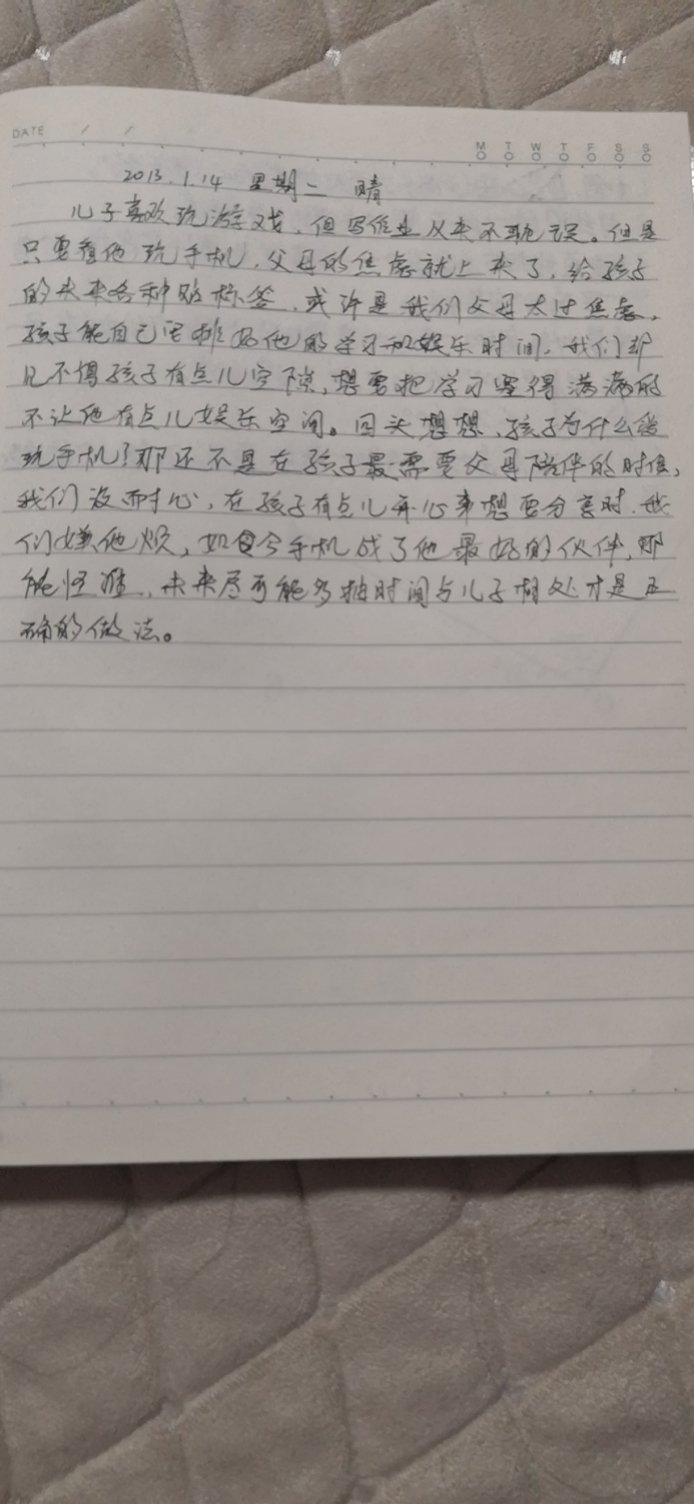 DATE / /
M T W T F S S
2013.1.14 星期二 晴
儿子喜欢玩游戏，但写作业从来不耽误。但是
只要看他玩手机，父母的焦虑就上来了，给孩子
的未来各种贴标签，或许是我们父母太过焦虑，
孩子能自己安排好他的学习和娱乐时间，我们却
见不得孩子有点儿空隙，想要把学习塞得满满的
不让他有点儿娱乐空间。回头想想，孩子为什么爱
玩手机？那还不是在孩子最需要父母陪伴的时候，
我们没耐心，在孩子有点儿开心事想要分享时，我
们嫌他烦，如今手机成了他最好的伙伴，那
能怪谁，未来尽可能多抽时间与儿子相处才是正
确的做法。